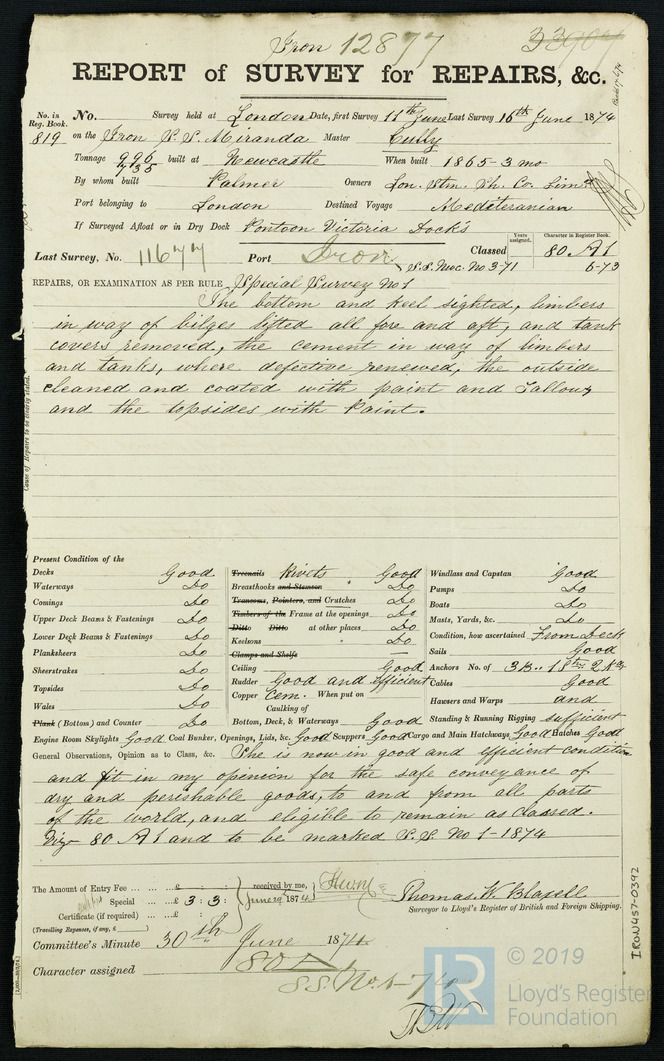 Iron 12877 33907
REPORT of SURVEY for REPAIRS, &c.
No. in Reg. Book. No. Survey held at London Date, first Survey 11th June Last Survey 16th June 1874
819 on the Iron S.S. Miranda Master Cully
Tonnage 996 735 built at Newcastle When built 1865-3 mo
By whom built Palmer Owners Lon. Stm. Sh. Co. Limd
Port belonging to London Destined Voyage Mediteranian
If Surveyed Afloat or in Dry Dock Pontoon Victoria Docks
Last Survey, No. 11677 Port Iron Classed Years assigned. Character in Register Book. 80 A1
S.S. No. 3-71 6-73
REPAIRS, OR EXAMINATION AS PER RULE Special Survey No 1
The bottom and keel sighted, limbers
in way of bilges lifted all fore and aft, and tank
covers removed, the cement in way of limbers
and tanks, where defective renewed, the outside
cleaned and coated with paint and Tallow,
and the topsides with Paint.
Cause of Repairs to be clearly stated.
Present Condition of the
Decks Good
Waterways Do
Comings Do
Upper Deck Beams & Fastenings Do
Lower Deck Beams & Fastenings Do
Planksheers Do
Sheerstrakes Do
Topsides Do
Wales Do
Plank (Bottom) and Counter Do
Treenails Rivets Good
Breasthooks and Stemson " Do
Transoms, Pointers, and Crutches Do
Timbers of the Frame at the openings Do
Ditto Ditto at other places Do
Keelsons " Do
Clamps and Shelfs —
Ceiling Good
Rudder Good and Efficient
Copper Cem. When put on
Caulking of
Bottom, Deck, & Waterways Good
Windlass and Capstan Good
Pumps Do
Boats Do
Masts, Yards, &c. Do
Condition, how ascertained From Deck
Sails Good
Anchors No. of 3 B.. 1 Str. 2 K.
Cables Good
Hawsers and Warps and
Standing & Running Rigging sufficient
Engine Room Skylights Good Coal Bunker, Openings, Lids, &c. Good Scuppers Good Cargo and Main Hatchways Good Hatches Good
General Observations, Opinion as to Class, &c. She is now in good and efficient condition
and fit in my opinion for the safe conveyance of
dry and perishable goods, to and from all parts
of the world, and eligible to remain as classed.
Viz 80 A1 and to be marked S.S. No 1-1874
The Amount of Entry Fee ... ... £ : : received by me,
Special ... ... £ 3 : 3 : June 29 1874
Certificate (if required) ... £ : :
(Travelling Expenses, if any, £ )
Thomas. W. Blaxell
Surveyor to Lloyd's Register of British and Foreign Shipping.
Committee's Minute 30th June 1874
Character assigned 80 A1
S.S. No. 1-74
IRON457-0392
© 2019
LR Lloyd's Register
Foundation